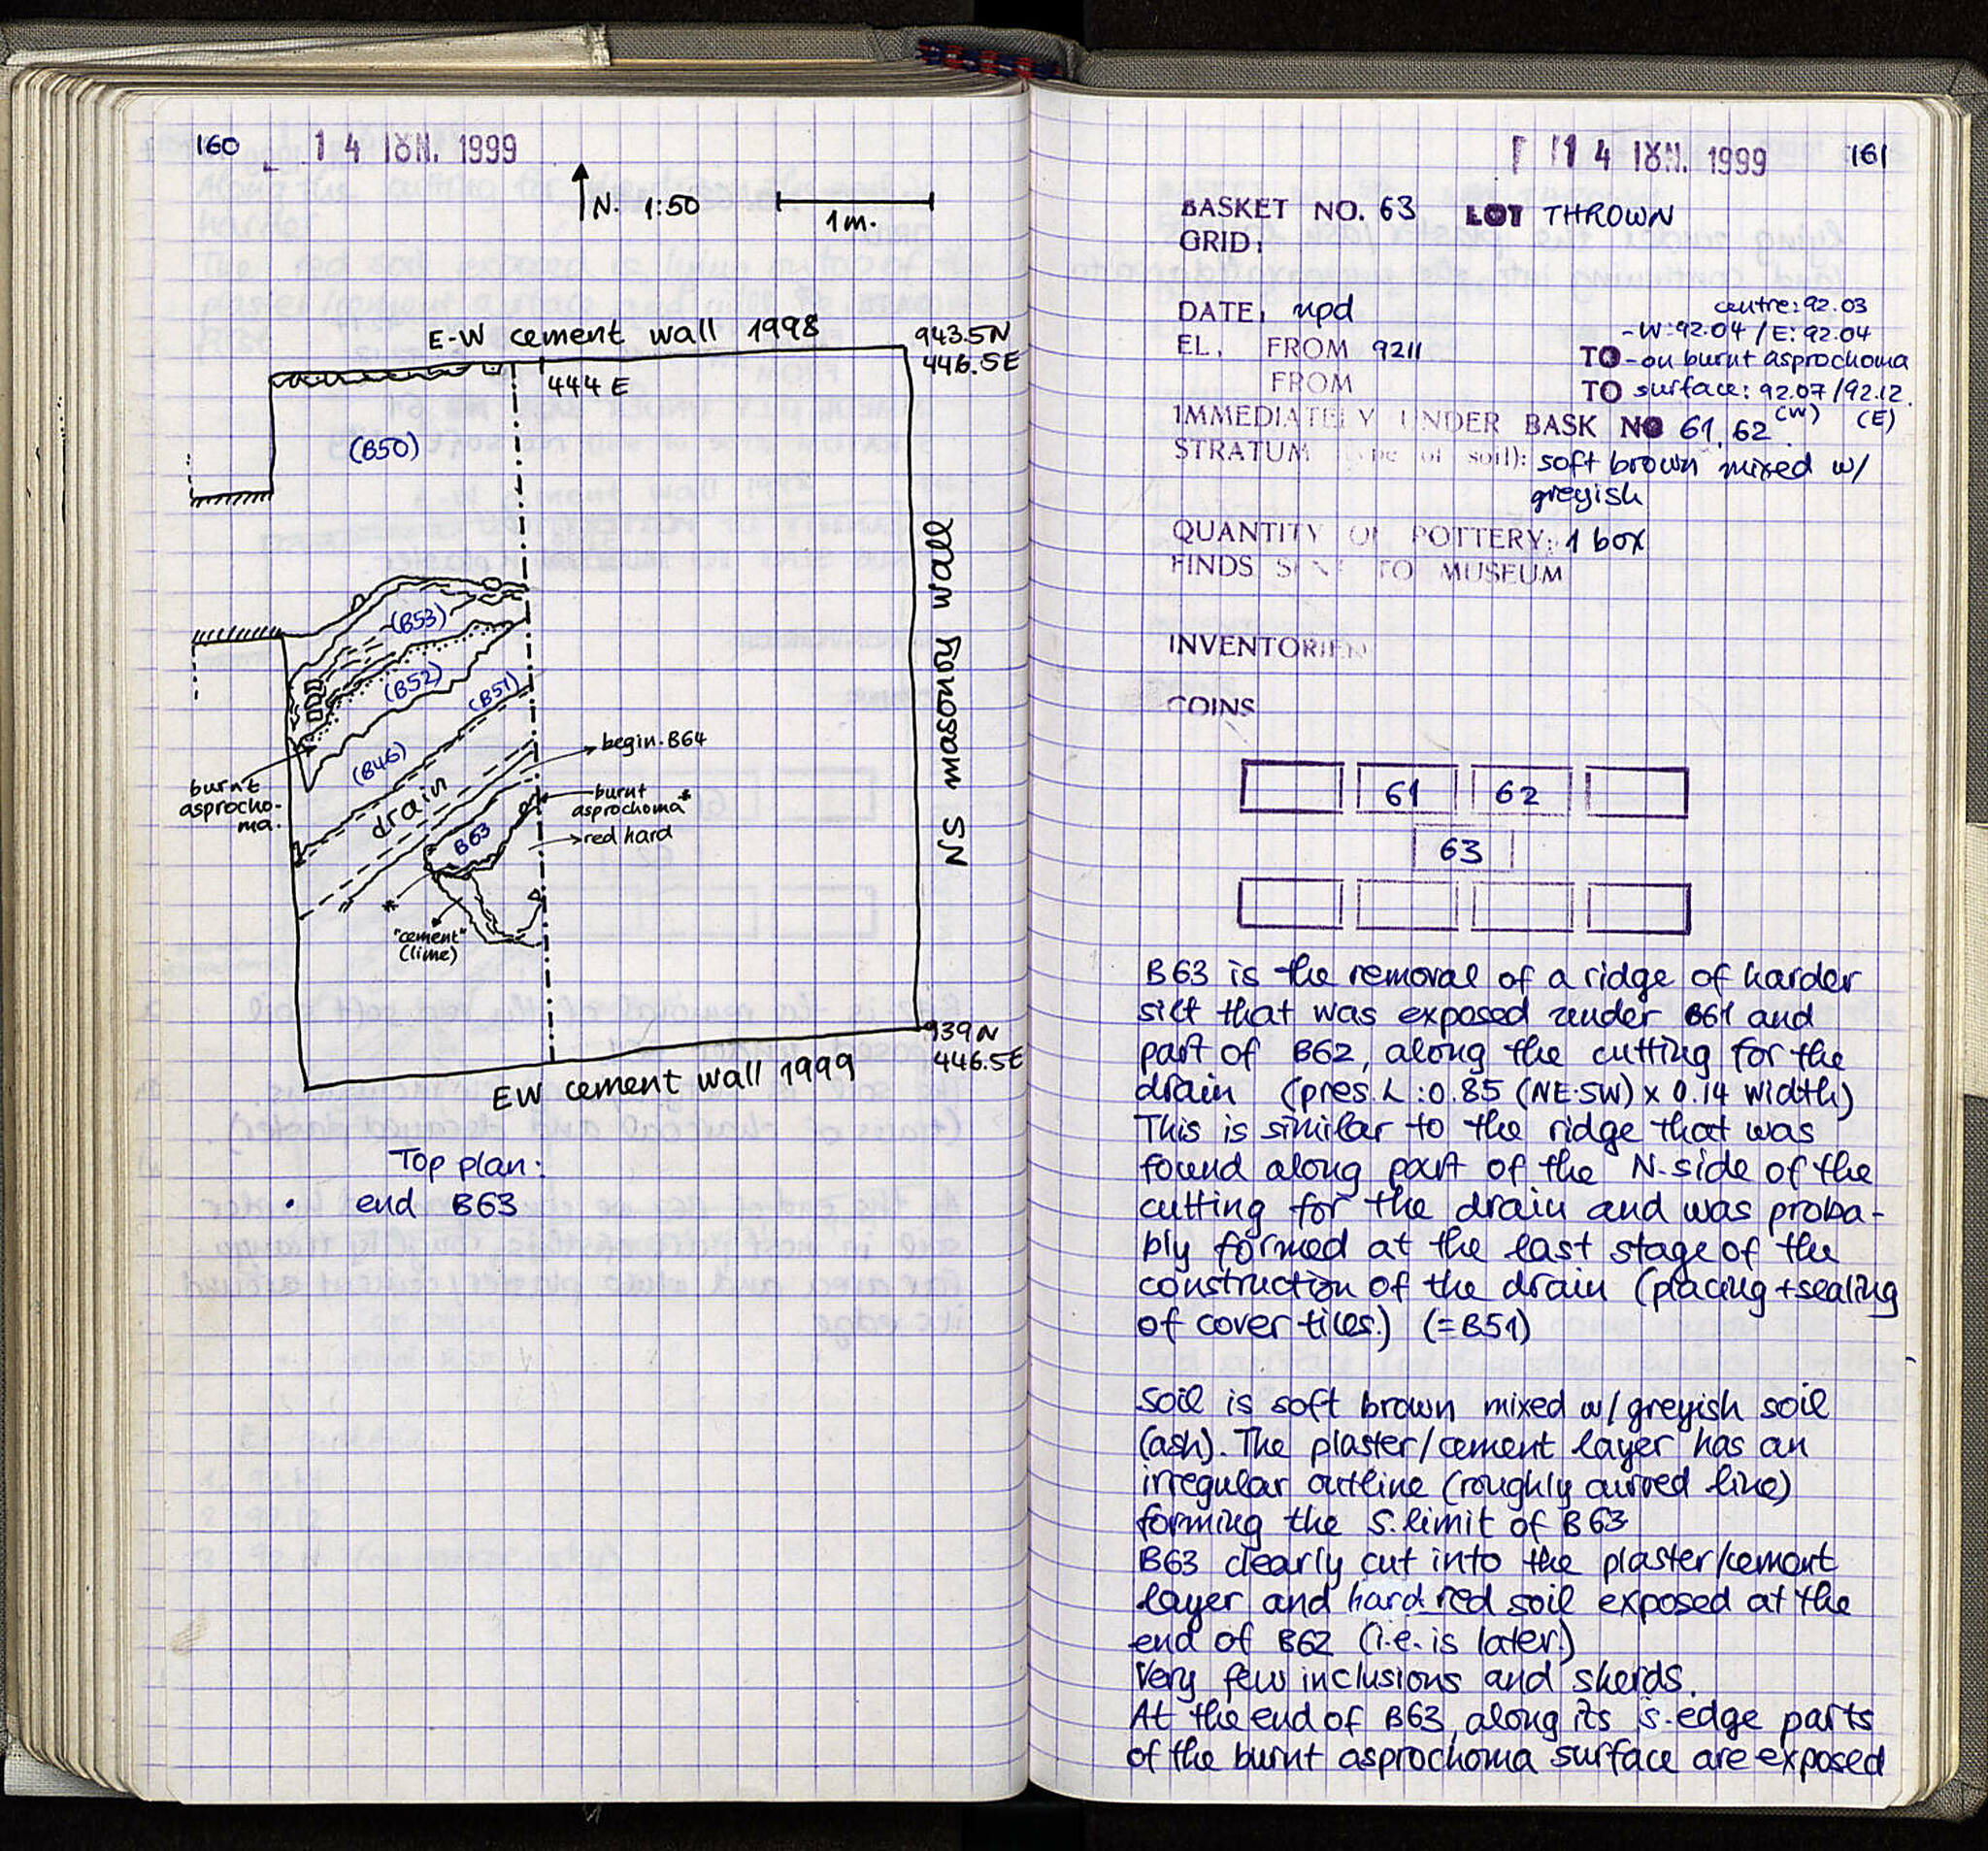 160
14 ΙΟΥΝ. 1999
N. 1:50
1m.
E-W cement wall 1998
943.5N
446.5E
444 E
(B50)
NS masonry wall
(B53)
(B52)
(B51)
(B46)
begin. B64
burnt
asprocho-
ma.
drain
burnt
asprochoma*
B63
→red hard
*
"cement"
(lime)
939N
446.5E
EW cement wall 1999
Top plan:
• end B63
14 ΙΟΥΝ. 1999
161
BASKET NO. 63 LOT THROWN
GRID:
DATE: npd
centre: 92.03
-W: 92.04 / E: 92.04
EL. FROM 9211
TO -on burnt asprochoma
FROM
TO surface: 92.07/92.12.
(W) (E)
IMMEDIATELY UNDER BASK NO 61, 62.
STRATUM (type of soil): soft brown mixed w/
greyish
QUANTITY OF POTTERY: 1 box
FINDS SENT TO MUSEUM
INVENTORIED
COINS
61 62
63
B63 is the removal of a ridge of harder
silt that was exposed under B61 and
part of B62, along the cutting for the
drain (pres. L: 0.85 (NE-SW) x 0.14 width)
This is similar to the ridge that was
found along part of the N-side of the
cutting for the drain and was proba-
bly formed at the last stage of the
construction of the drain (placing + sealing
of cover tiles.) (=B51)
Soil is soft brown mixed w/ greyish soil
(ash). The plaster/cement layer has an
irregular outline (roughly curved line)
forming the S. limit of B63
B63 clearly cut into the plaster/cement
layer and hard red soil exposed at the
end of B62 (i.e. is later)
Very few inclusions and sherds.
At the end of B63, along its S-edge parts
of the burnt asprochoma surface are exposed